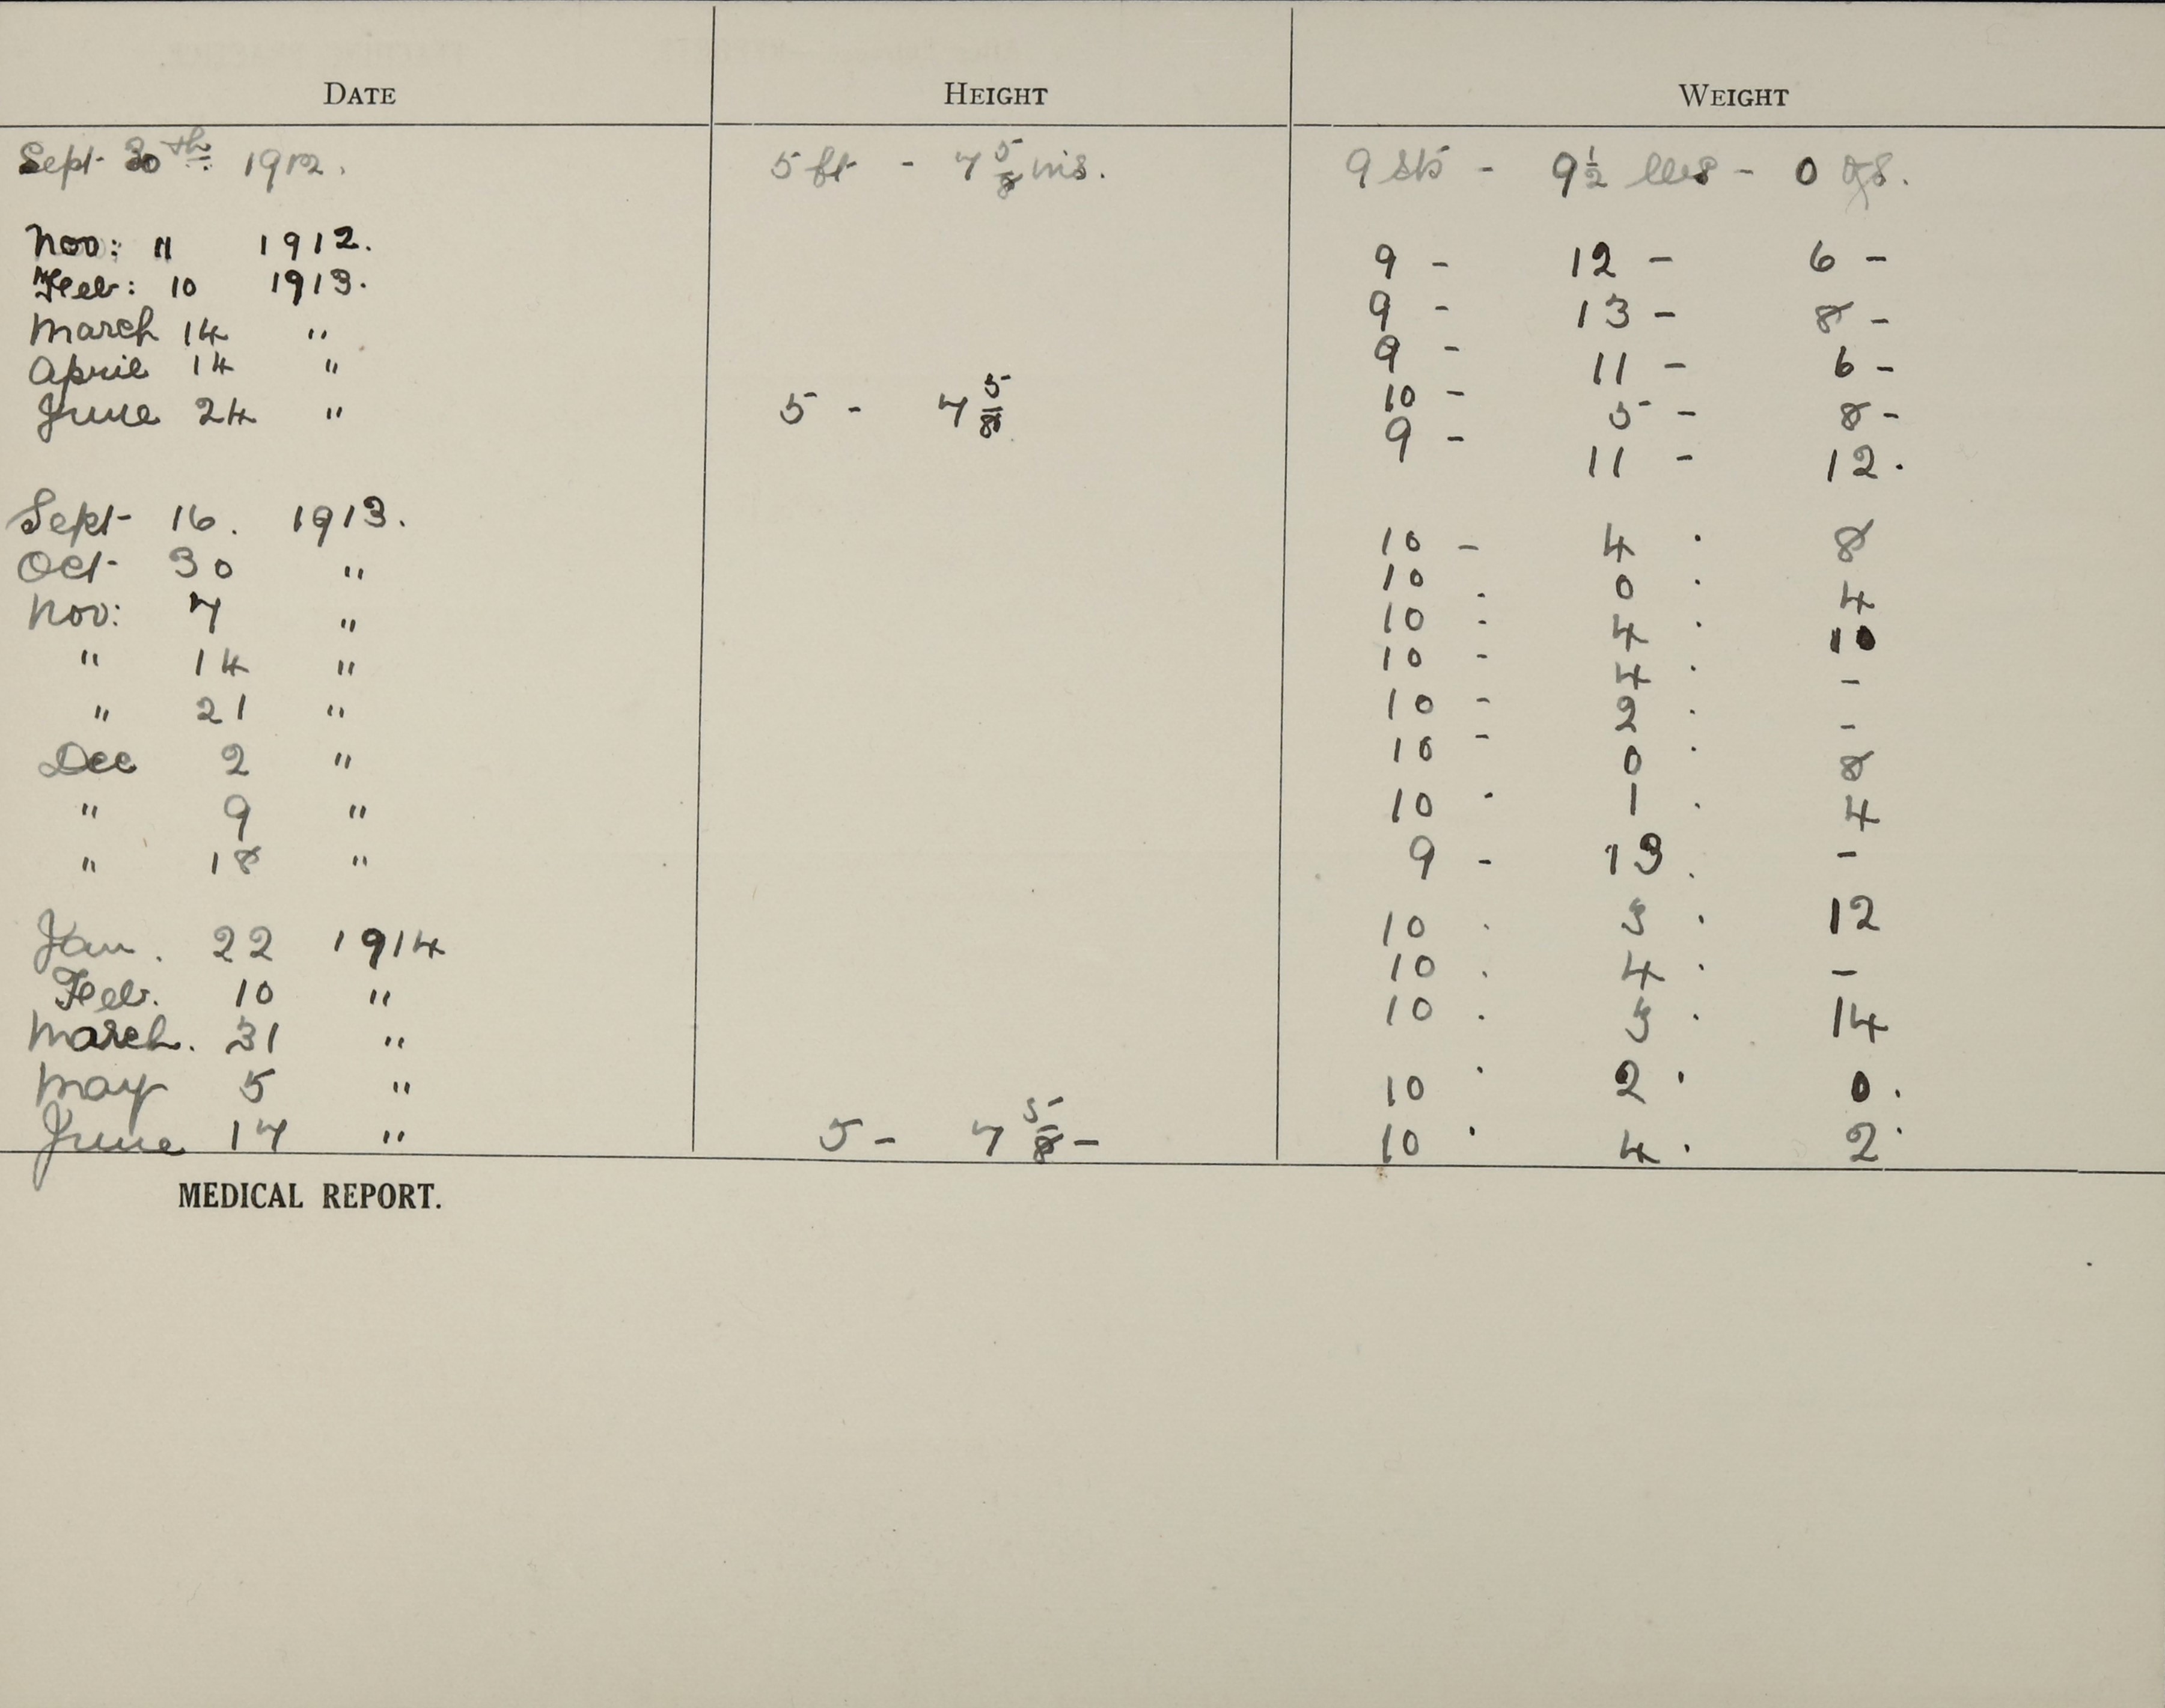 DATE HEIGHT WEIGHT
Sept 30th 1912. 5 ft - 7 5/8 ins. 9 sts - 9 1/2 lbs - 0 ozs.
Nov: 11 1912. 9 - 12 - 6 -
Feb: 10 1913. 9 - 13 - 8 -
March 14 " 9 - 11 - 6 -
April 14 " 10 - 5 - 8 -
June 24 " 5 - 7 5/8 9 - 11 - 12.
Sept 16. 1913. 10 - 4 . 8
Oct 30 " 10 . 0 . 4
Nov: 7 " 10 - 4 . 10
" 14 " 10 - 4 . -
" 21 " 10 - 2 . -
Dec 2 " 10 - 0 . 8
" 9 " 10 . 1 . 4
" 18 " 9 - 13 . -
Jan. 22 1914 10 . 3 . 12
Feb. 10 " 10 . 4 . -
March. 31 " 10 . 3 . 14
May 5 " 10 . 2 . 0 .
June 17 " 5 - 7 5/8 - 10 . 4 . 2 .
MEDICAL REPORT.